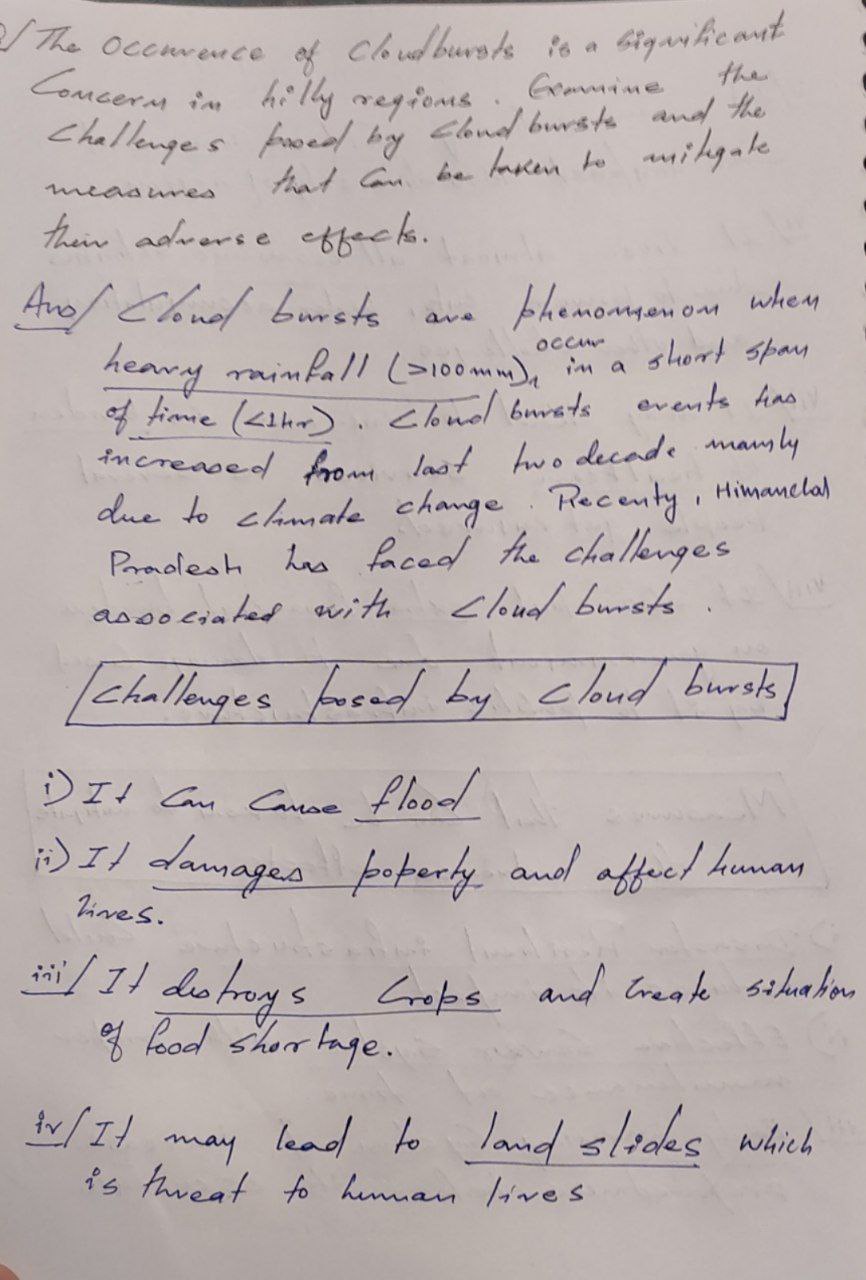 Q/ The Occurence of Cloudbursts is a Significant
Concern in hilly regions. Examine the
Challenges posed by Cloud bursts and the
measures that Can be taken to mitigate
their adverse effects.
Ans/ Cloud bursts are phenomenon when
heavy rainfall (>100mm) occur in a short span
of time (<1hr). Cloud bursts events has
increased from last two decade mainly
due to climate change. Recenty, Himanchal
Pradesh has faced the challenges
associated with Cloud bursts.
Challenges posed by Cloud bursts
i) It Can Cause flood
ii) It damages poperty and affect human
lives.
iii/ It destroys Crops and Create situation
of food shortage.
iv/ It may lead to land slides which
is threat to human lives